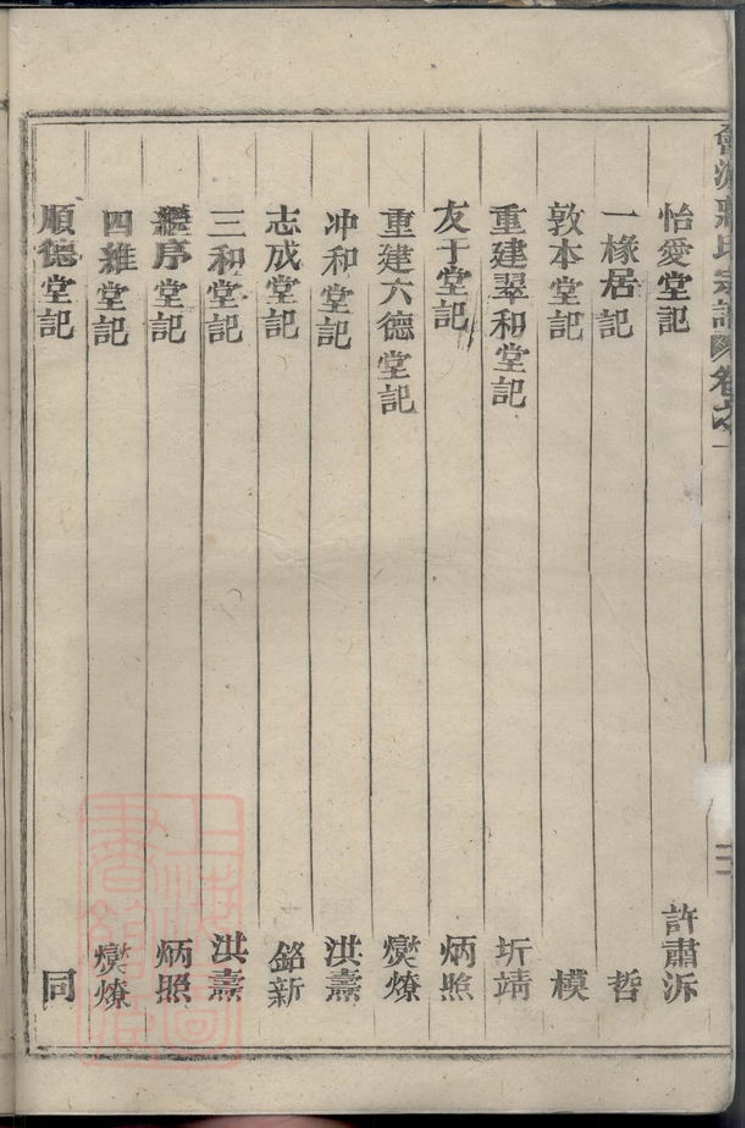 宗譜 卷之一
二
怡愛堂記 許肅泝
一椽居記 哲
敦本堂記 模
重建翠和堂記 圻靖
友于堂記 炳照
重建六德堂記 爕燎
冲和堂記 洪燾
志成堂記 銘新
三和堂記 洪燾
繼序堂記 炳照
四維堂記 爕燎
順德堂記 同
上海圖書館藏